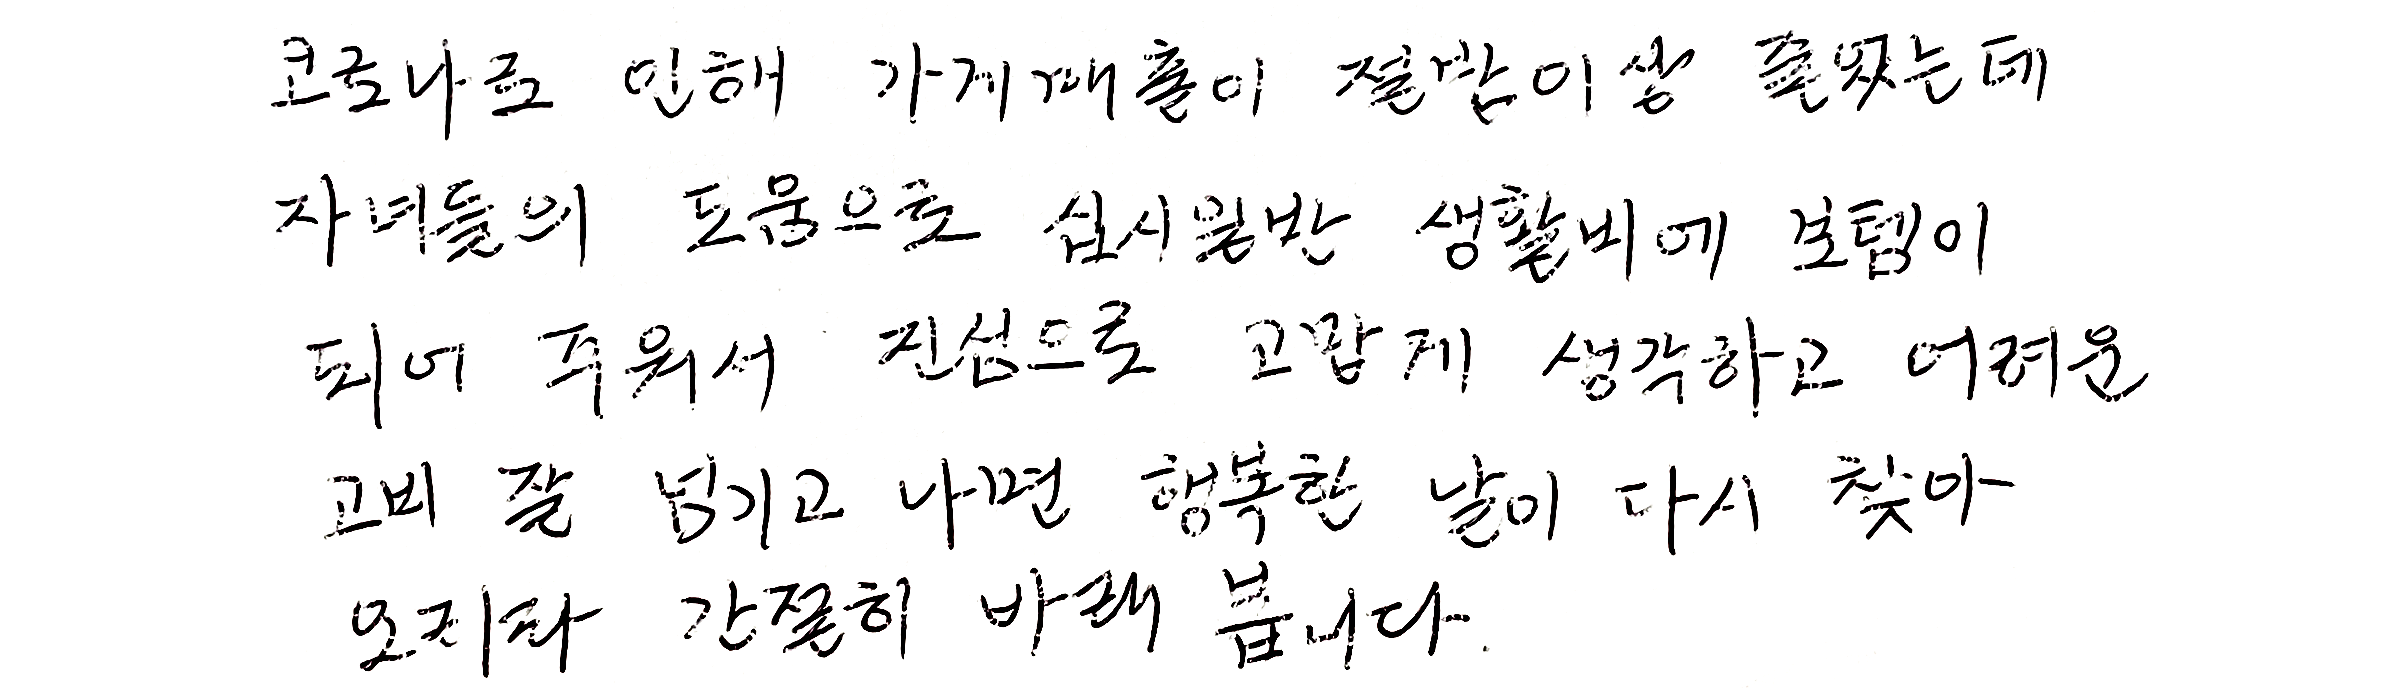 코로나로 인해 가게매출이 절반이상 줄었는데
자녀들의 도움으로 십시일반 생활비에 보탬이
되어 주워서 진심으로 고맙게 생각하고 어려운
고비 잘 넘기고 나면 행복한 날이 다시 찾아
오지라 간절히 바래 봅니다.